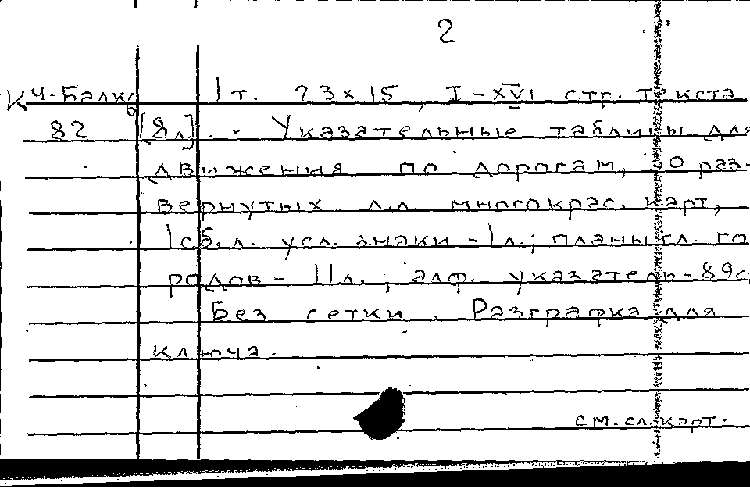 2
К Ч-Балк 1 т. 23 × 15, I - XVI стр. текста
6
82 [8л]. Указательные таблицы для
движения по дорогам, 30 раз-
вернутых л.л. многокрас. карт,
1 сб. л. усл. знаки - 1 л.; планы гл. го
родов - 11 л., алф. указатель - 89 с
Без сетки. Разграфка для
ключа.
см. сл. карт.